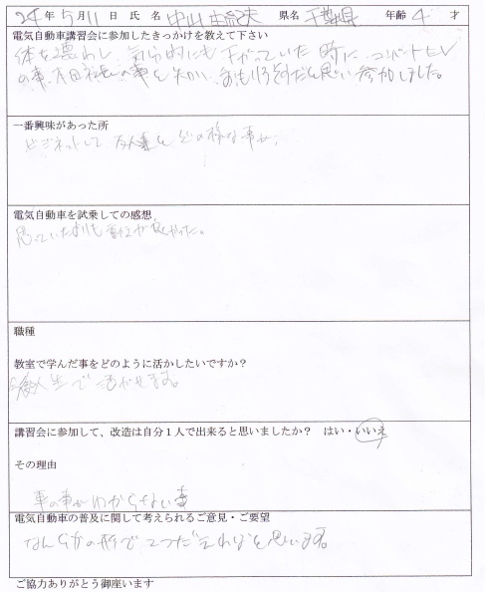 24年5月11日 氏名 中山 由紀夫 県名 千葉県 年齢 4 才
電気自動車講習会に参加したきっかけを教えて下さい
体を壊わし、気分的にも下がっていた時に、コンバートEV
の事、社長の事を知り、おもしろそうだと思い参加しました。
一番興味があった所
ビジネスとして
電気自動車を試乗しての感想
思っていたよりも が良かった。
職種
教室で学んだ事をどのように活かしたいですか?
人生で 活かせます。
講習会に参加して、改造は自分1人で出来ると思いましたか? はい・いいえ
その理由
車の事がわからない
電気自動車の普及に関して考えられるご意見・ご要望
なんらかの形で と思います。
ご協力ありがとう御座います